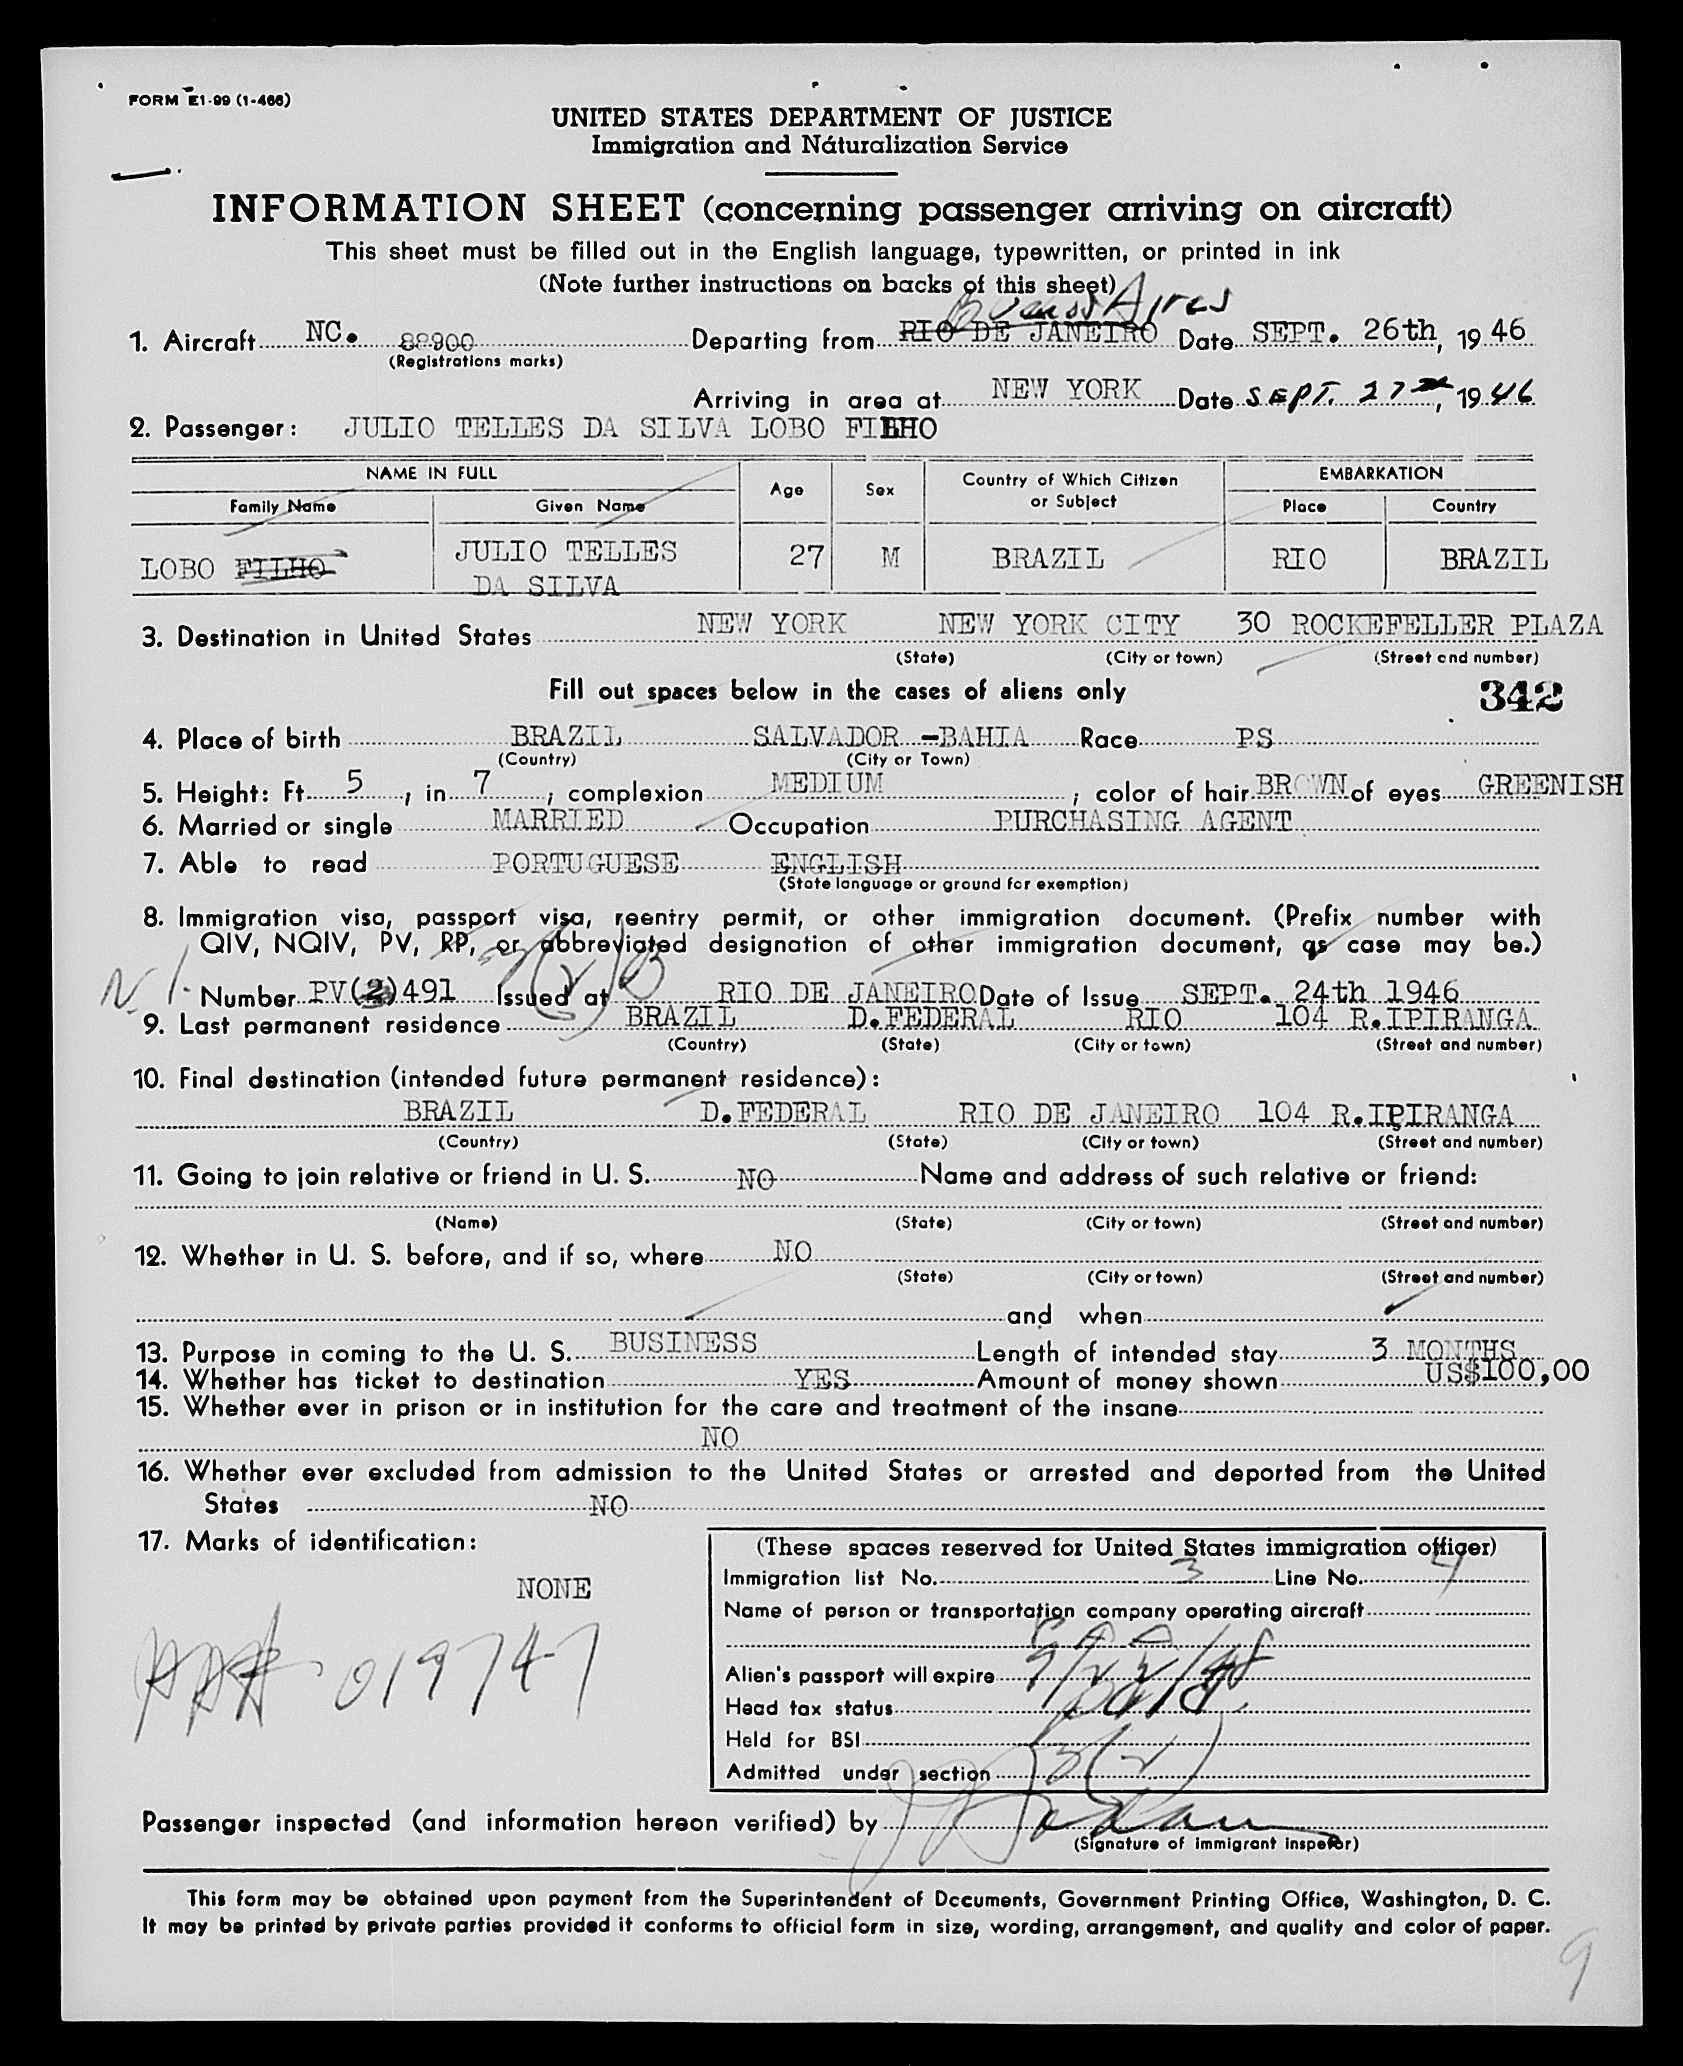 FORM E1-99 (1-466)
UNITED STATES DEPARTMENT OF JUSTICE
Immigration and Naturalization Service
INFORMATION SHEET (concerning passenger arriving on aircraft)
This sheet must be filled out in the English language, typewritten, or printed in ink
(Note further instructions on backs of this sheet)
Buenos Aires
1. Aircraft NC. 88900 Departing from RIO DE JANEIRO Date SEPT. 26th, 19 46
(Registrations marks)
Arriving in area at NEW YORK Date SEPT. 27th, 19 46
2. Passenger: JULIO TELLES DA SILVA LOBO FILHO
NAME IN FULL Age Sex Country of Which Citizen or Subject EMBARKATION
Family Name Given Name Place Country
LOBO FILHO JULIO TELLES DA SILVA 27 M BRAZIL RIO BRAZIL
3. Destination in United States NEW YORK NEW YORK CITY 30 ROCKEFELLER PLAZA
(State) (City or town) (Street and number)
Fill out spaces below in the cases of aliens only 342
4. Place of birth BRAZIL SALVADOR -BAHIA Race PS
(Country) (City or Town)
5. Height: Ft. 5, in. 7; complexion MEDIUM; color of hair BROWN of eyes GREENISH
6. Married or single MARRIED Occupation PURCHASING AGENT
7. Able to read PORTUGUESE ENGLISH
(State language or ground for exemption)
8. Immigration visa, passport visa, reentry permit, or other immigration document. (Prefix number with
QIV, NQIV, PV, RP, or abbreviated designation of other immigration document, as case may be.)
3(2)B
Number PV(2)491 Issued at RIO DE JANEIRO Date of Issue SEPT. 24th 1946
9. Last permanent residence BRAZIL D.FEDERAL RIO 104 R.IPIRANGA
(Country) (State) (City or town) (Street and number)
10. Final destination (intended future permanent residence):
BRAZIL D.FEDERAL RIO DE JANEIRO 104 R.IPIRANGA
(Country) (State) (City or town) (Street and number)
11. Going to join relative or friend in U. S. NO Name and address of such relative or friend:
(Name) (State) (City or town) (Street and number)
12. Whether in U. S. before, and if so, where NO
(State) (City or town) (Street and number)
and when
13. Purpose in coming to the U. S. BUSINESS Length of intended stay 3 MONTHS
14. Whether has ticket to destination YES Amount of money shown US$100,00
15. Whether ever in prison or in institution for the care and treatment of the insane
NO
16. Whether ever excluded from admission to the United States or arrested and deported from the United
States NO
17. Marks of identification:
NONE
019747
(These spaces reserved for United States immigration officer)
Immigration list No. 3 Line No. 4
Name of person or transportation company operating aircraft
PAA
Alien's passport will expire 9/22/48
Head tax status paid
Held for BSI
Admitted under section 3(2)
Passenger inspected (and information hereon verified) by
(Signature of immigrant inspector)
This form may be obtained upon payment from the Superintendent of Documents, Government Printing Office, Washington, D. C.
It may be printed by private parties provided it conforms to official form in size, wording, arrangement, and quality and color of paper.
9